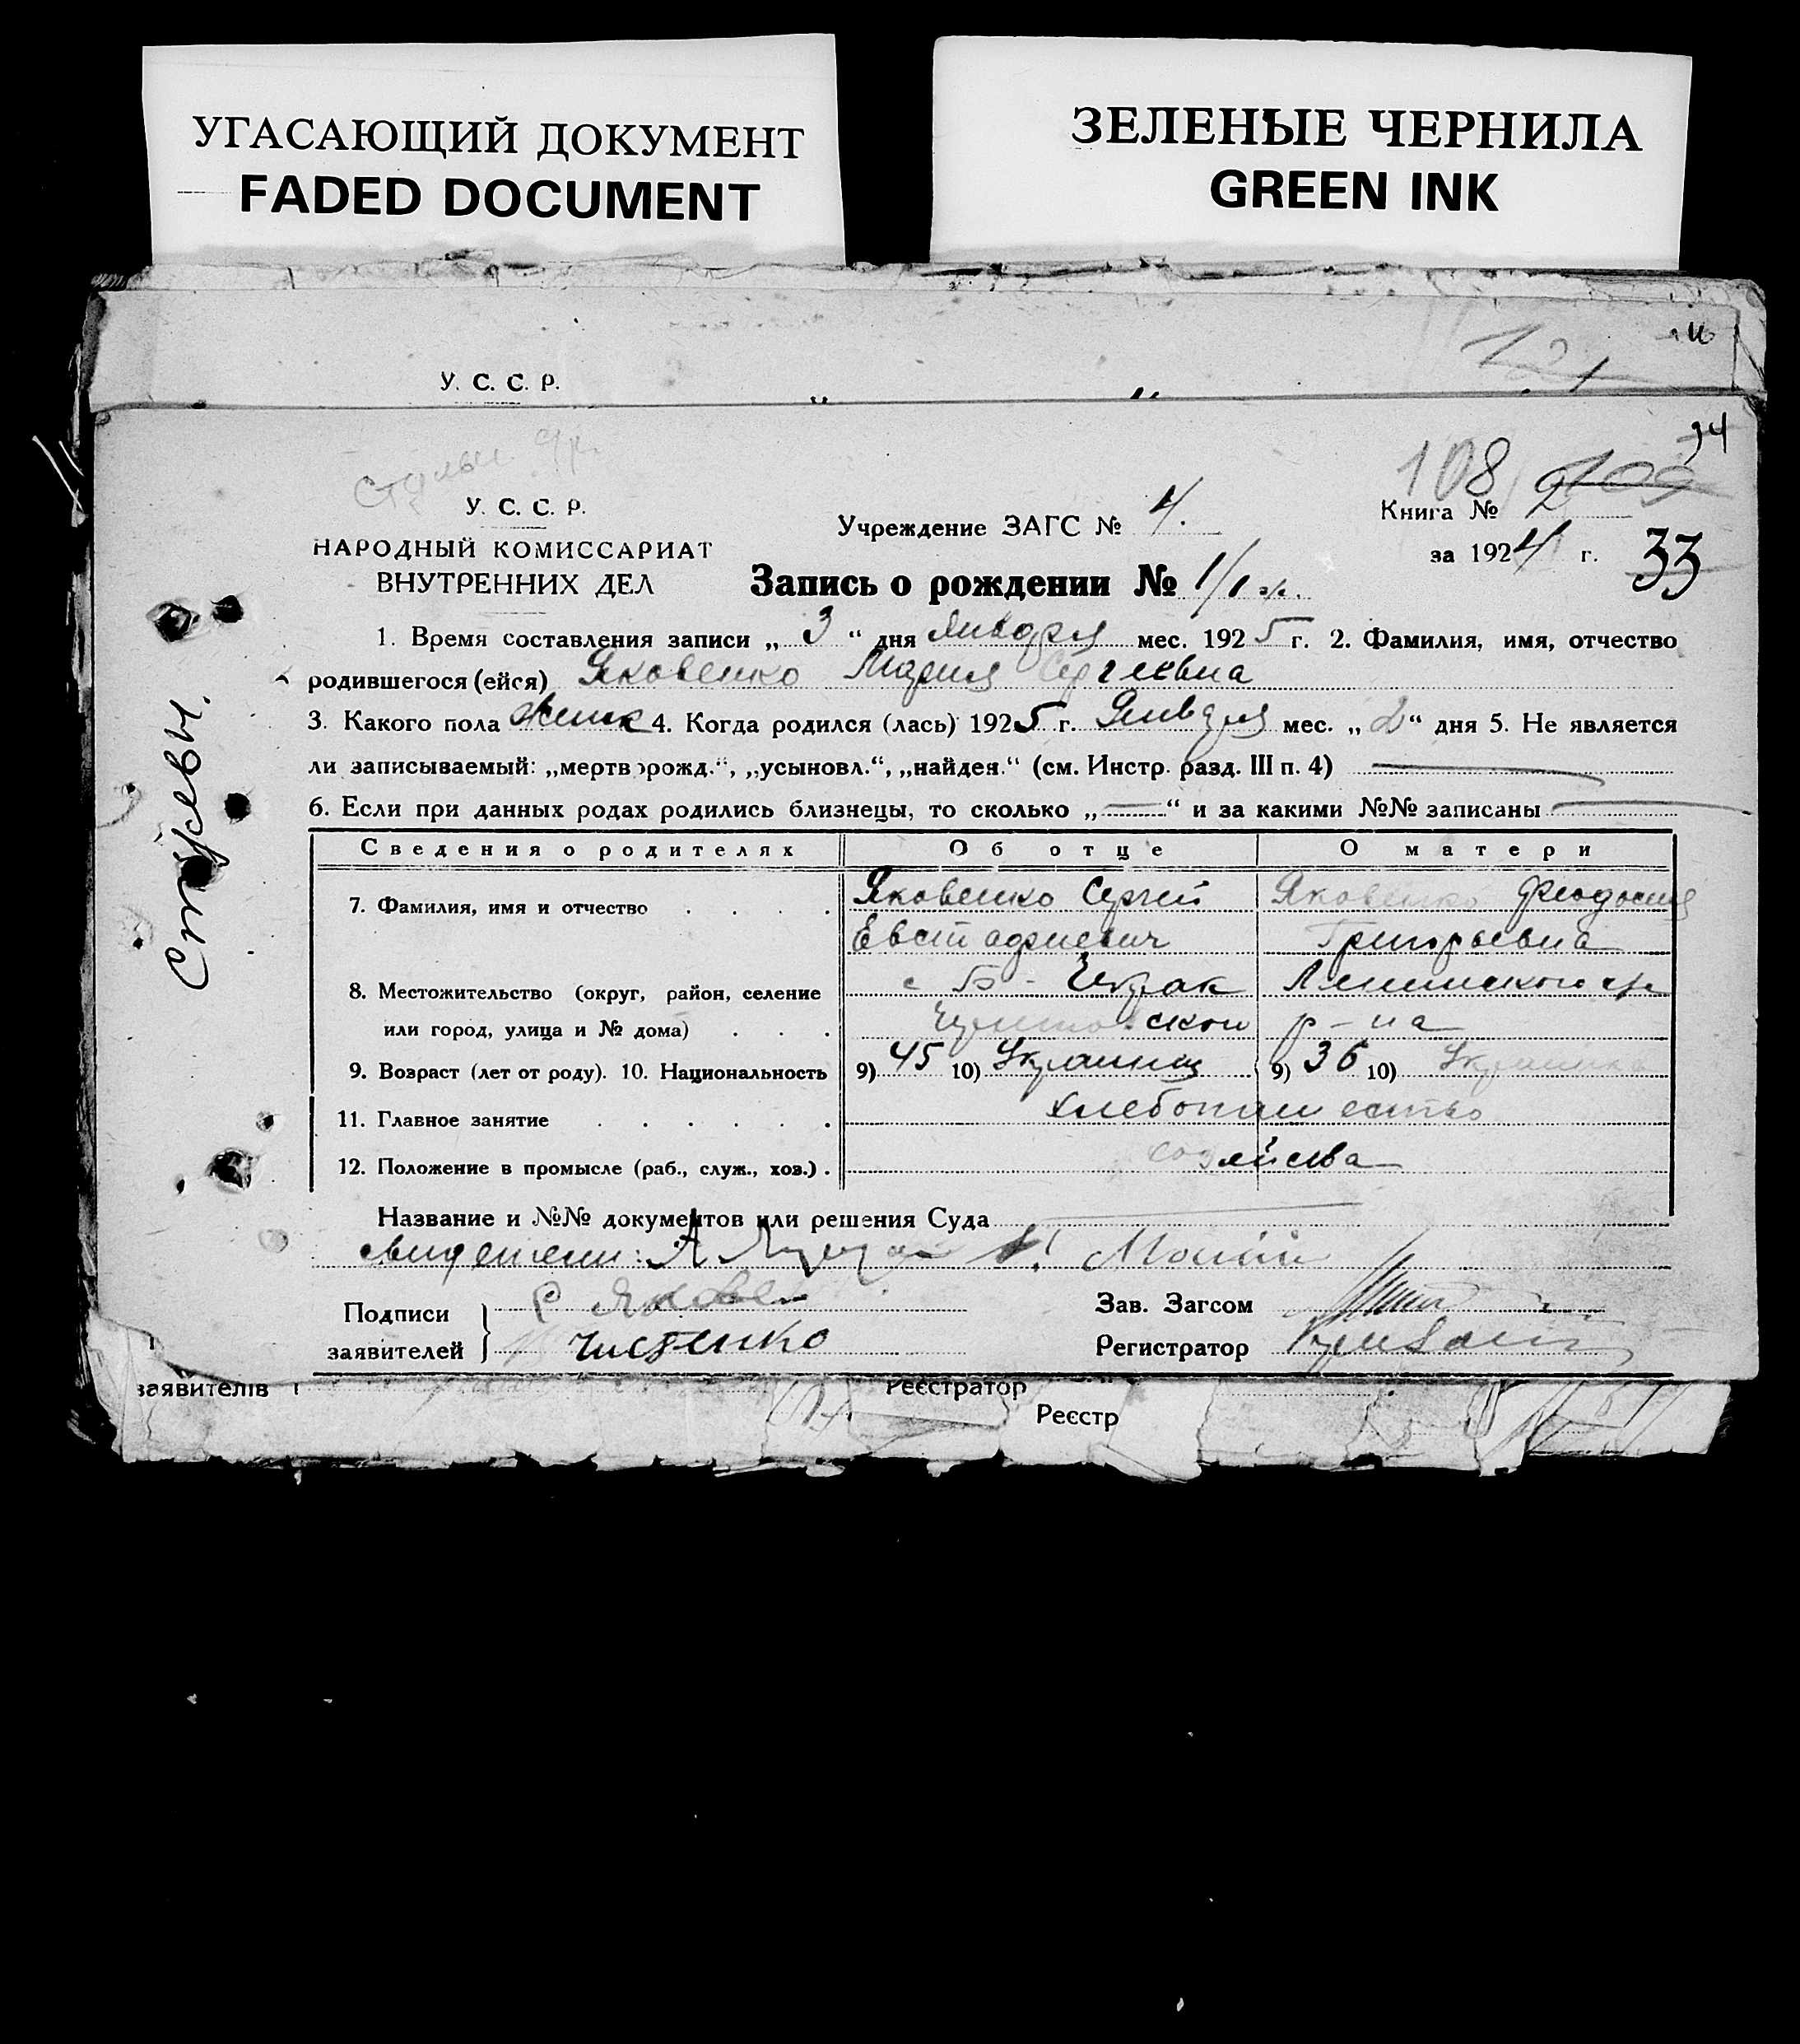 УГАСАЮЩИЙ ДОКУМЕНТ
FADED DOCUMENT
ЗЕЛЕНЫЕ ЧЕРНИЛА
GREEN INK
У. С. С. Р.
34
108 109
У. С. С. Р.
НАРОДНЫЙ КОМИССАРИАТ
ВНУТРЕННИХ ДЕЛ
Учреждение ЗАГС № 4.
Книга № 2
за 1924 г. 33
Запись о рождении № 1/1 ж.
1. Время составления записи „ 3 “ дня января мес. 1925 г. 2. Фамилия, имя, отчество
родившегося (ейся) Яковенко Мария Сергеевна
3. Какого пола женск 4. Когда родился (лась) 1925 г. Января мес. „ 2 “ дня 5. Не является
ли записываемый: „мертворожд.“, „усыновл.“, „найден.“ (см. Инстр. разд. III п. 4)
6. Если при данных родах родились близнецы, то сколько „ “ и за какими №№ записаны
Сведения о родителях Об отце О матери
7. Фамилия, имя и отчество Яковенко Сергей Яковенко Феодосия
Евстафиевич Григорьевна
8. Местожительство (округ, район, селение с Б-
или город, улица и № дома) р-на
9. Возраст (лет от роду). 10. Национальность 9) 45 10) Украинец 9) 36 10) Украинка
11. Главное занятие хлебопашество
12. Положение в промысле (раб., служ., хоз.)
Название и №№ документов или решения Суда
свидетели:
Подписи
заявителей
Зав. Загсом
Регистратор
заявителів Реєстратор
Реєстр